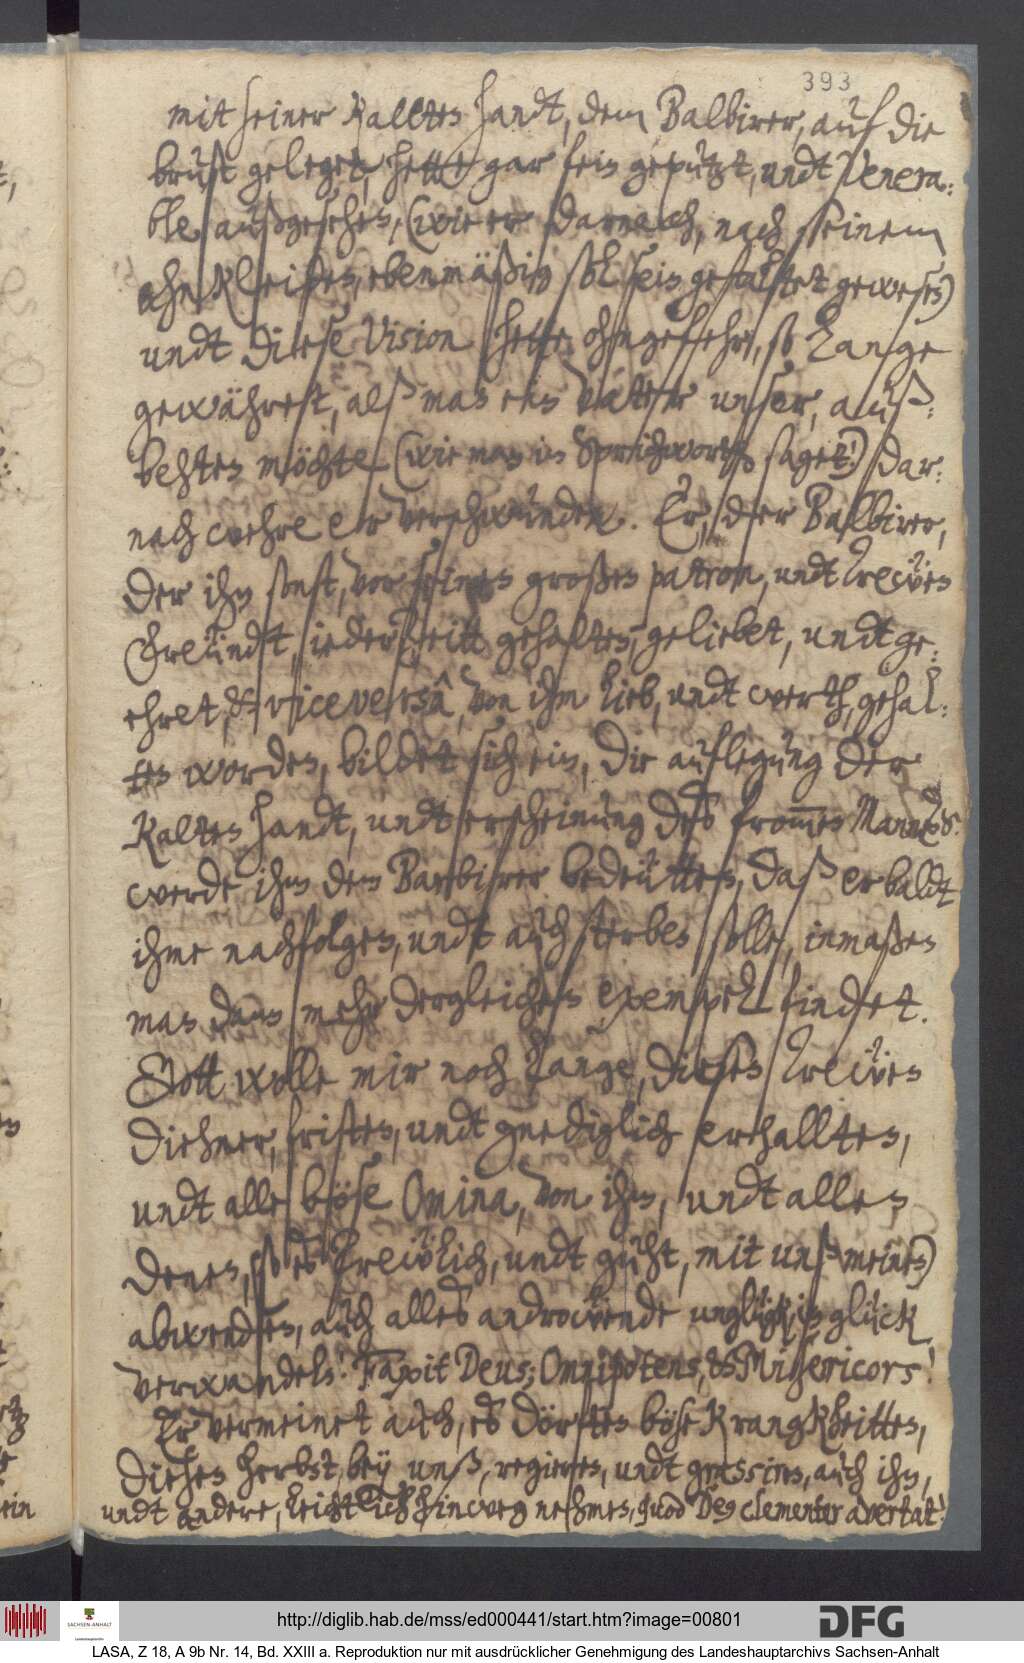 393
mit seiner kallten handt, dem Balbirer, auf die
brust geleget, hette gar fein geputzt, undt Venera-
ble, außgesehen, (wie er darnach, nach seinem
ehrkleide, ebenmäßig soll sein gestaltet gewesen)
undt diese Vision hette ohngefehr, so lange
gewähret, alß man ein Vatter unser, auß-
behten möchte (wie man im Sprichwortt saget:) dar-
nach wehre er verschwunden. Er, der Balbirer,
der ihn sonst, vor seinen großen patron, undt trewen
Freundt, iederzeitt gehalten, geliebet, undt ge-
ehret, & vice versâ, von ihm lieb, undt werth, gehal-
ten worden, bildet sich ein, die auflegung der
kalten handt, undt erscheinung deß from̅en Mannes
werde ihm dem Barbirer bedeutten, daß er baldt
ihme nachfolgen, undt auch sterben solle, inmaßen
man dann mehr dergleichen exempel findet.
Gott wolle mir noch lange, diesen trewen
Diehner, fristen, undt gnediglich erhallten,
undt alle böse Omina, von ihm, undt allen
denen, so es trewlich, undt guht, mit unß meinen)
abwenden, auch alles androwende unglück, in glück,
verwandeln! Faxit Deus; Omnipotens, & Misericors!
Er vermeinet auch, es dörften böse Krangkheitten,
diesen herbst, bey unß, regieren, undt grassiren, auch ihn,
undt andere, leichtlich hinweg nehmen, quod Deus clementer avertat!
http://diglib.hab.de/mss/ed000441/start.htm?image=00801
SACHSEN-ANHALT
DFG
LASA, Z 18, A 9b Nr. 14, Bd. XXIII a. Reproduktion nur mit ausdrücklicher Genehmigung des Landeshauptarchivs Sachsen-Anhalt